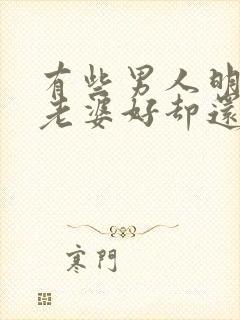 有些男人明
老婆好却还
寒門